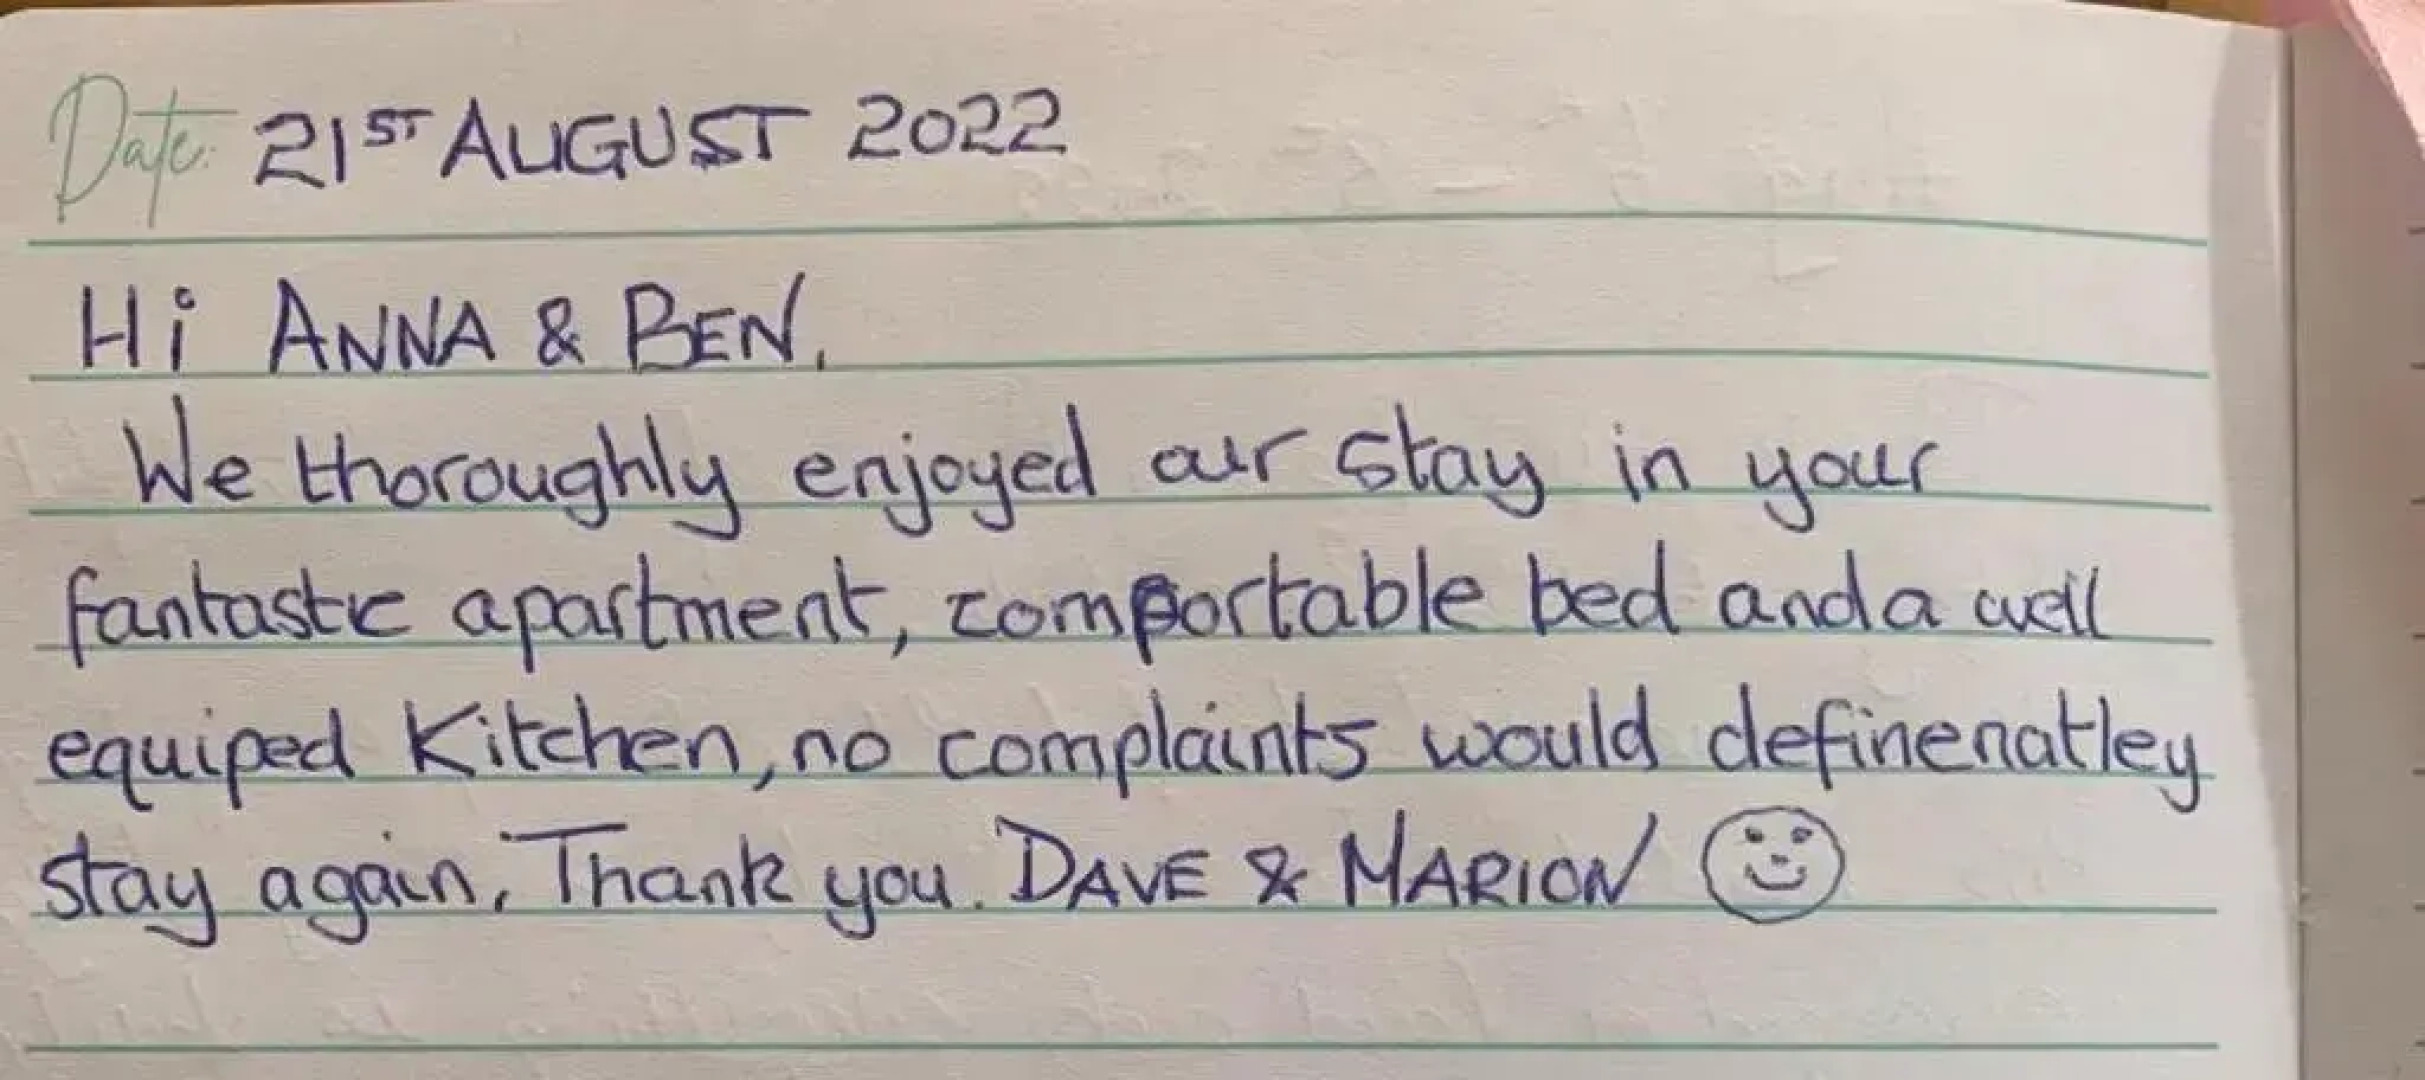 Date: 21ST AUGUST 2022
Hi ANNA & BEN,
We thoroughly enjoyed our stay in your
fantastic apartment, comfortable bed and a well
equiped Kitchen, no complaints would definenatley
stay again, Thank you. DAVE & MARION